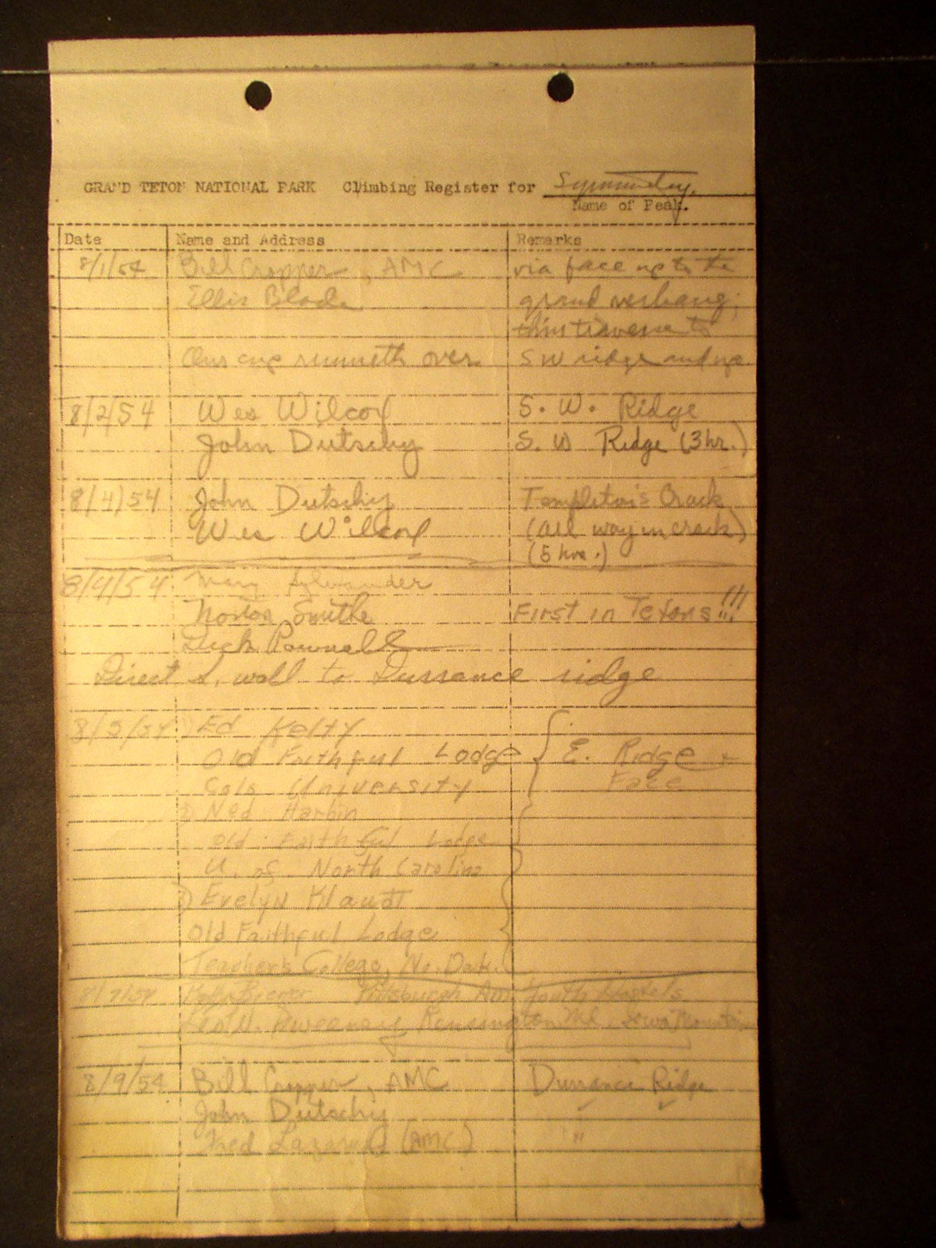 GRAND TETON NATIONAL PARK Climbing Register for
Name of Peak.
Date Name and Address Remarks
8/1/54 Bill Cropper, AMC via face up to the
Ellis Blade grand overhang;
thin traverse to
Our cup runneth over SW ridge and up.
8/2/54 Wes Wilcox S. W. Ridge
John Dutschy S. W Ridge (3 hr.)
8/4/54 John Dutschy Templeton's Crack
Wes Wilcox (all way in crack)
(5 hrs.)
8/4/54 Mary Sylvander
Norton Smithe First in Tetons!!!
Dick Pownall
Direct S. wall to Durrance ridge
Ed Kelty
Old Faithful Lodge E. Ridge +
Colo University Face
2) Ned Harbin
Old Faithful Lodge
U. of North Carolina
3) Evelyn Klaudt
Old Faithful Lodge
Teacher's College, No. Dak.
Pittsburgh Am Youth Hostels
Kensington Md.
8/9/54 Bill Cropper, AMC Durrance Ridge
John Dutschy
Fred (AMC) "